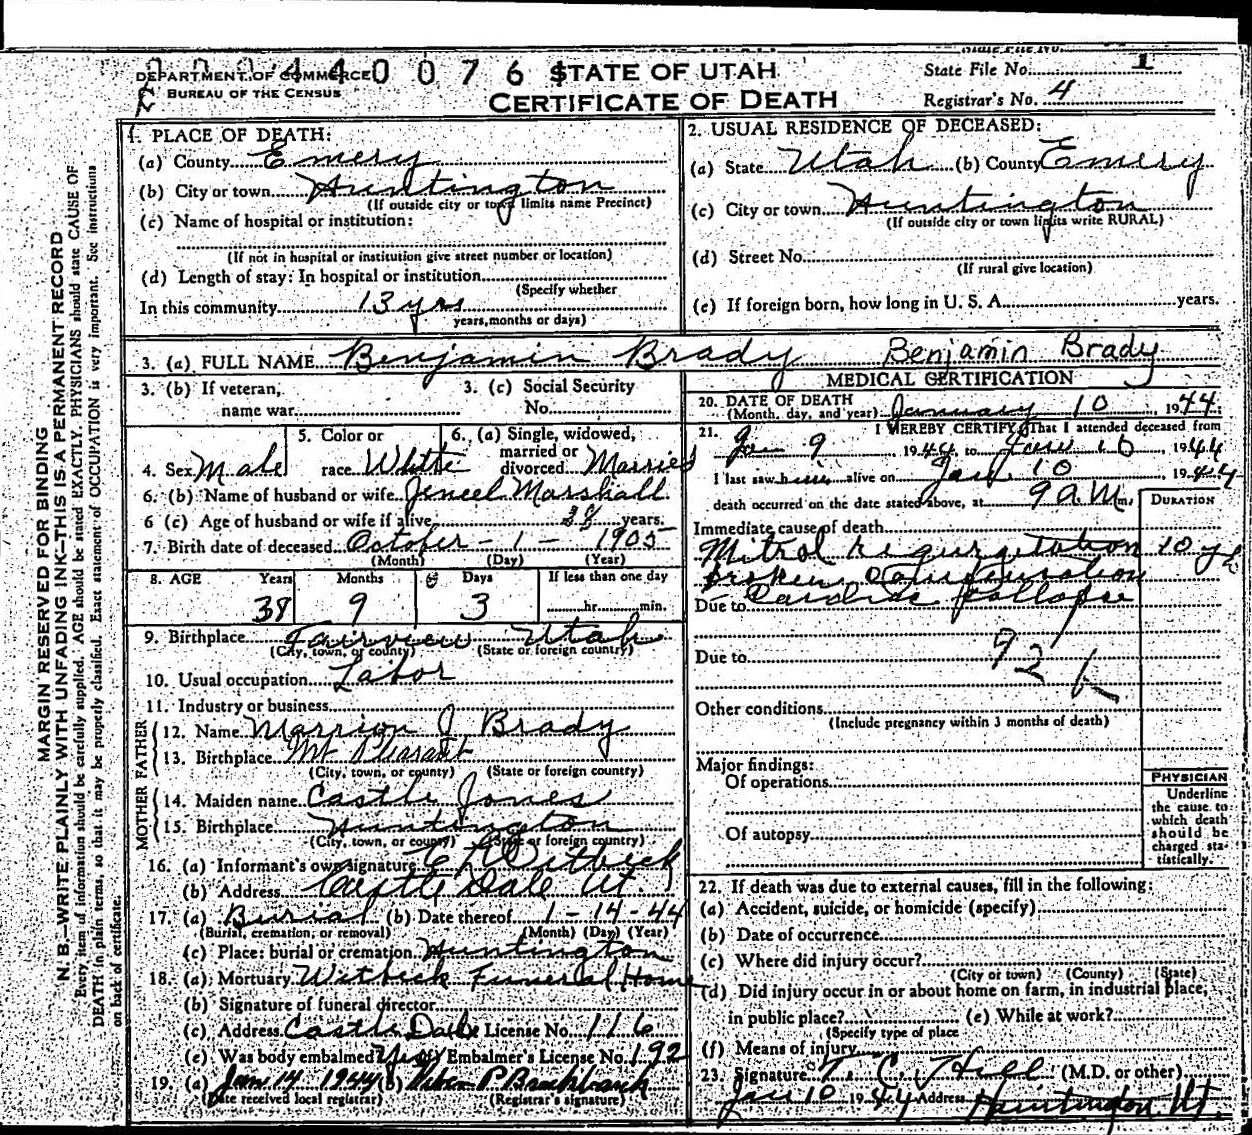 DEPARTMENT OF COMMERCE
BUREAU OF THE CENSUS
4 4 0 0 7 6
STATE OF UTAH
CERTIFICATE OF DEATH
State File No. 1
Registrar's No. 4
MARGIN RESERVED FOR BINDING
N. B.—WRITE PLAINLY WITH UNFADING INK—THIS IS A PERMANENT RECORD
Every item of information should be carefully supplied. AGE should be stated EXACTLY. PHYSICIANS should state CAUSE OF
DEATH in plain terms, so that it may be properly classified. Exact statement of OCCUPATION is very important. See instructions
on back of certificate.
1. PLACE OF DEATH:
(a) County Emery
(b) City or town Huntington
(If outside city or town limits name Precinct)
(c) Name of hospital or institution:
(If not in hospital or institution give street number or location)
(d) Length of stay: In hospital or institution
(Specify whether
In this community 13 yrs
years, months or days)
2. USUAL RESIDENCE OF DECEASED:
(a) State Utah (b) County Emery
(c) City or town Huntington
(If outside city or town limits write RURAL)
(d) Street No.
(If rural give location)
(e) If foreign born, how long in U. S. A. years.
3. (a) FULL NAME Benjamin Brady Benjamin Brady
3. (b) If veteran, name war
3. (c) Social Security No.
4. Sex Male
5. Color or race White
6. (a) Single, widowed, married or divorced Married
6. (b) Name of husband or wife Marshall
6 (c) Age of husband or wife if alive 38 years.
7. Birth date of deceased October - 1 - 1905
(Month) (Day) (Year)
8. AGE Years Months Days If less than one day
38 9 3 hr. min.
9. Birthplace Fairview Utah
(City, town, or county) (State or foreign country)
10. Usual occupation Labor
11. Industry or business
FATHER
12. Name Marrion J Brady
13. Birthplace Mt Pleasant
(City, town, or county) (State or foreign country)
MOTHER
14. Maiden name Castle Jones
15. Birthplace Huntington
(City, town, or county) (State or foreign country)
16. (a) Informant's own signature Witbeck
(b) Address Castle Dale Ut.
17. (a) Burial (b) Date thereof 1 - 14 - 44
(Burial, cremation, or removal) (Month) (Day) (Year)
(c) Place: burial or cremation Huntington
18. (a) Mortuary Witbeck Funeral Home
(b) Signature of funeral director
(c) Address Castle Dale License No. 116
(e) Was body embalmed Yes Embalmer's License No. 192
19. (a) Jan 14 1944 (b)
(Date received local registrar) (Registrar's signature)
MEDICAL CERTIFICATION
20. DATE OF DEATH
(Month, day, and year) January 10, 1944
21. I HEREBY CERTIFY, That I attended deceased from
Jan 9 1944, to Jan 10 1944
I last saw him alive on Jan 10 1944
death occurred on the date stated above, at 9 a.m.
DURATION
Immediate cause of death
Mitral Regurgitation 10 yr
broken
Due to Cardiac Collapse
Due to 92
Other conditions
(Include pregnancy within 3 months of death)
Major findings:
Of operations
Of autopsy
PHYSICIAN
Underline
the cause to
which death
should be
charged sta-
tistically.
22. If death was due to external causes, fill in the following:
(a) Accident, suicide, or homicide (specify)
(b) Date of occurrence
(c) Where did injury occur?
(City or town) (County) (State)
(d) Did injury occur in or about home on farm, in industrial place,
in public place? (e) While at work?
(Specify type of place
(f) Means of injury
23. Signature T. C. Hill (M.D. or other)
Jan 10 1944 Address Huntington Ut.